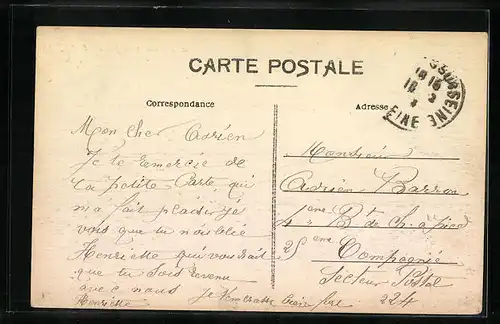 CARTE POSTALE
Correspondance
Adresse
Mon cher Adrien
Je te remercie de
ta petite Carte qui
m'a fait plaisir je
vois que tu n'oublie
Henriette qui voudrait
que tu sois revenu
avec nous Je t'embrasse bien fort
Henriette
Monsieur
Adrien
4eme B.t de ch. à pied
25 eme Compagnie
Secteur Postal
224